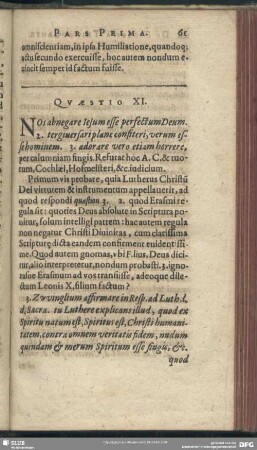 PARS PRIMA. 61
omniscientiam, in ipsa Humiliatione, quandoq;
actu secundo exercuisse, hoc autem nondum e-
vincit semper id factum fuisse.
QVÆSTIO XI.
NOs abnegare Iesum esse perfectum Deum.
2. tergiversari plane confiteri, verum es-
se hominem. 3. adorare vero etiam horrere,
per calumniam fingis. Refutat hoc A. C. & tuo-
rum, Cochlæi, Hofmeisteri, &c. iudicium.
Primum vis probare, quia Lutherus Christũ
Dei virtutem & instrumentum appellaverit, ad
quod respondi quæstion 3. 2. quod Erasmi re-
gula sit: quoties Deus absolute in Scriptura po-
nitur, solum intelligi patrem: hac autem regula
non negatur Christi Divinitas, cum clarissima
Scripturæ dicta eandem confirment euidentissi-
me. Quod autem gnomas, vbi Filius, Deus dici-
tur, alio interpretetur, nondum probasti. 3. igno-
rasne Erasmum ad vos transisse, adeoque dile-
ctum Leonis X, filium factum?
3. Zwunglium affirmare in Resp. ad Luth. d.
d, Sacra. tu Luthere explicans illud, quod ex
Spiritu natum est, Spiritus est, Christi humani-
tatem, contra omnem veritatis fidem, nudum
quendam & merum Spiritum esse fingis, &c.
quod
SLUB
DFG